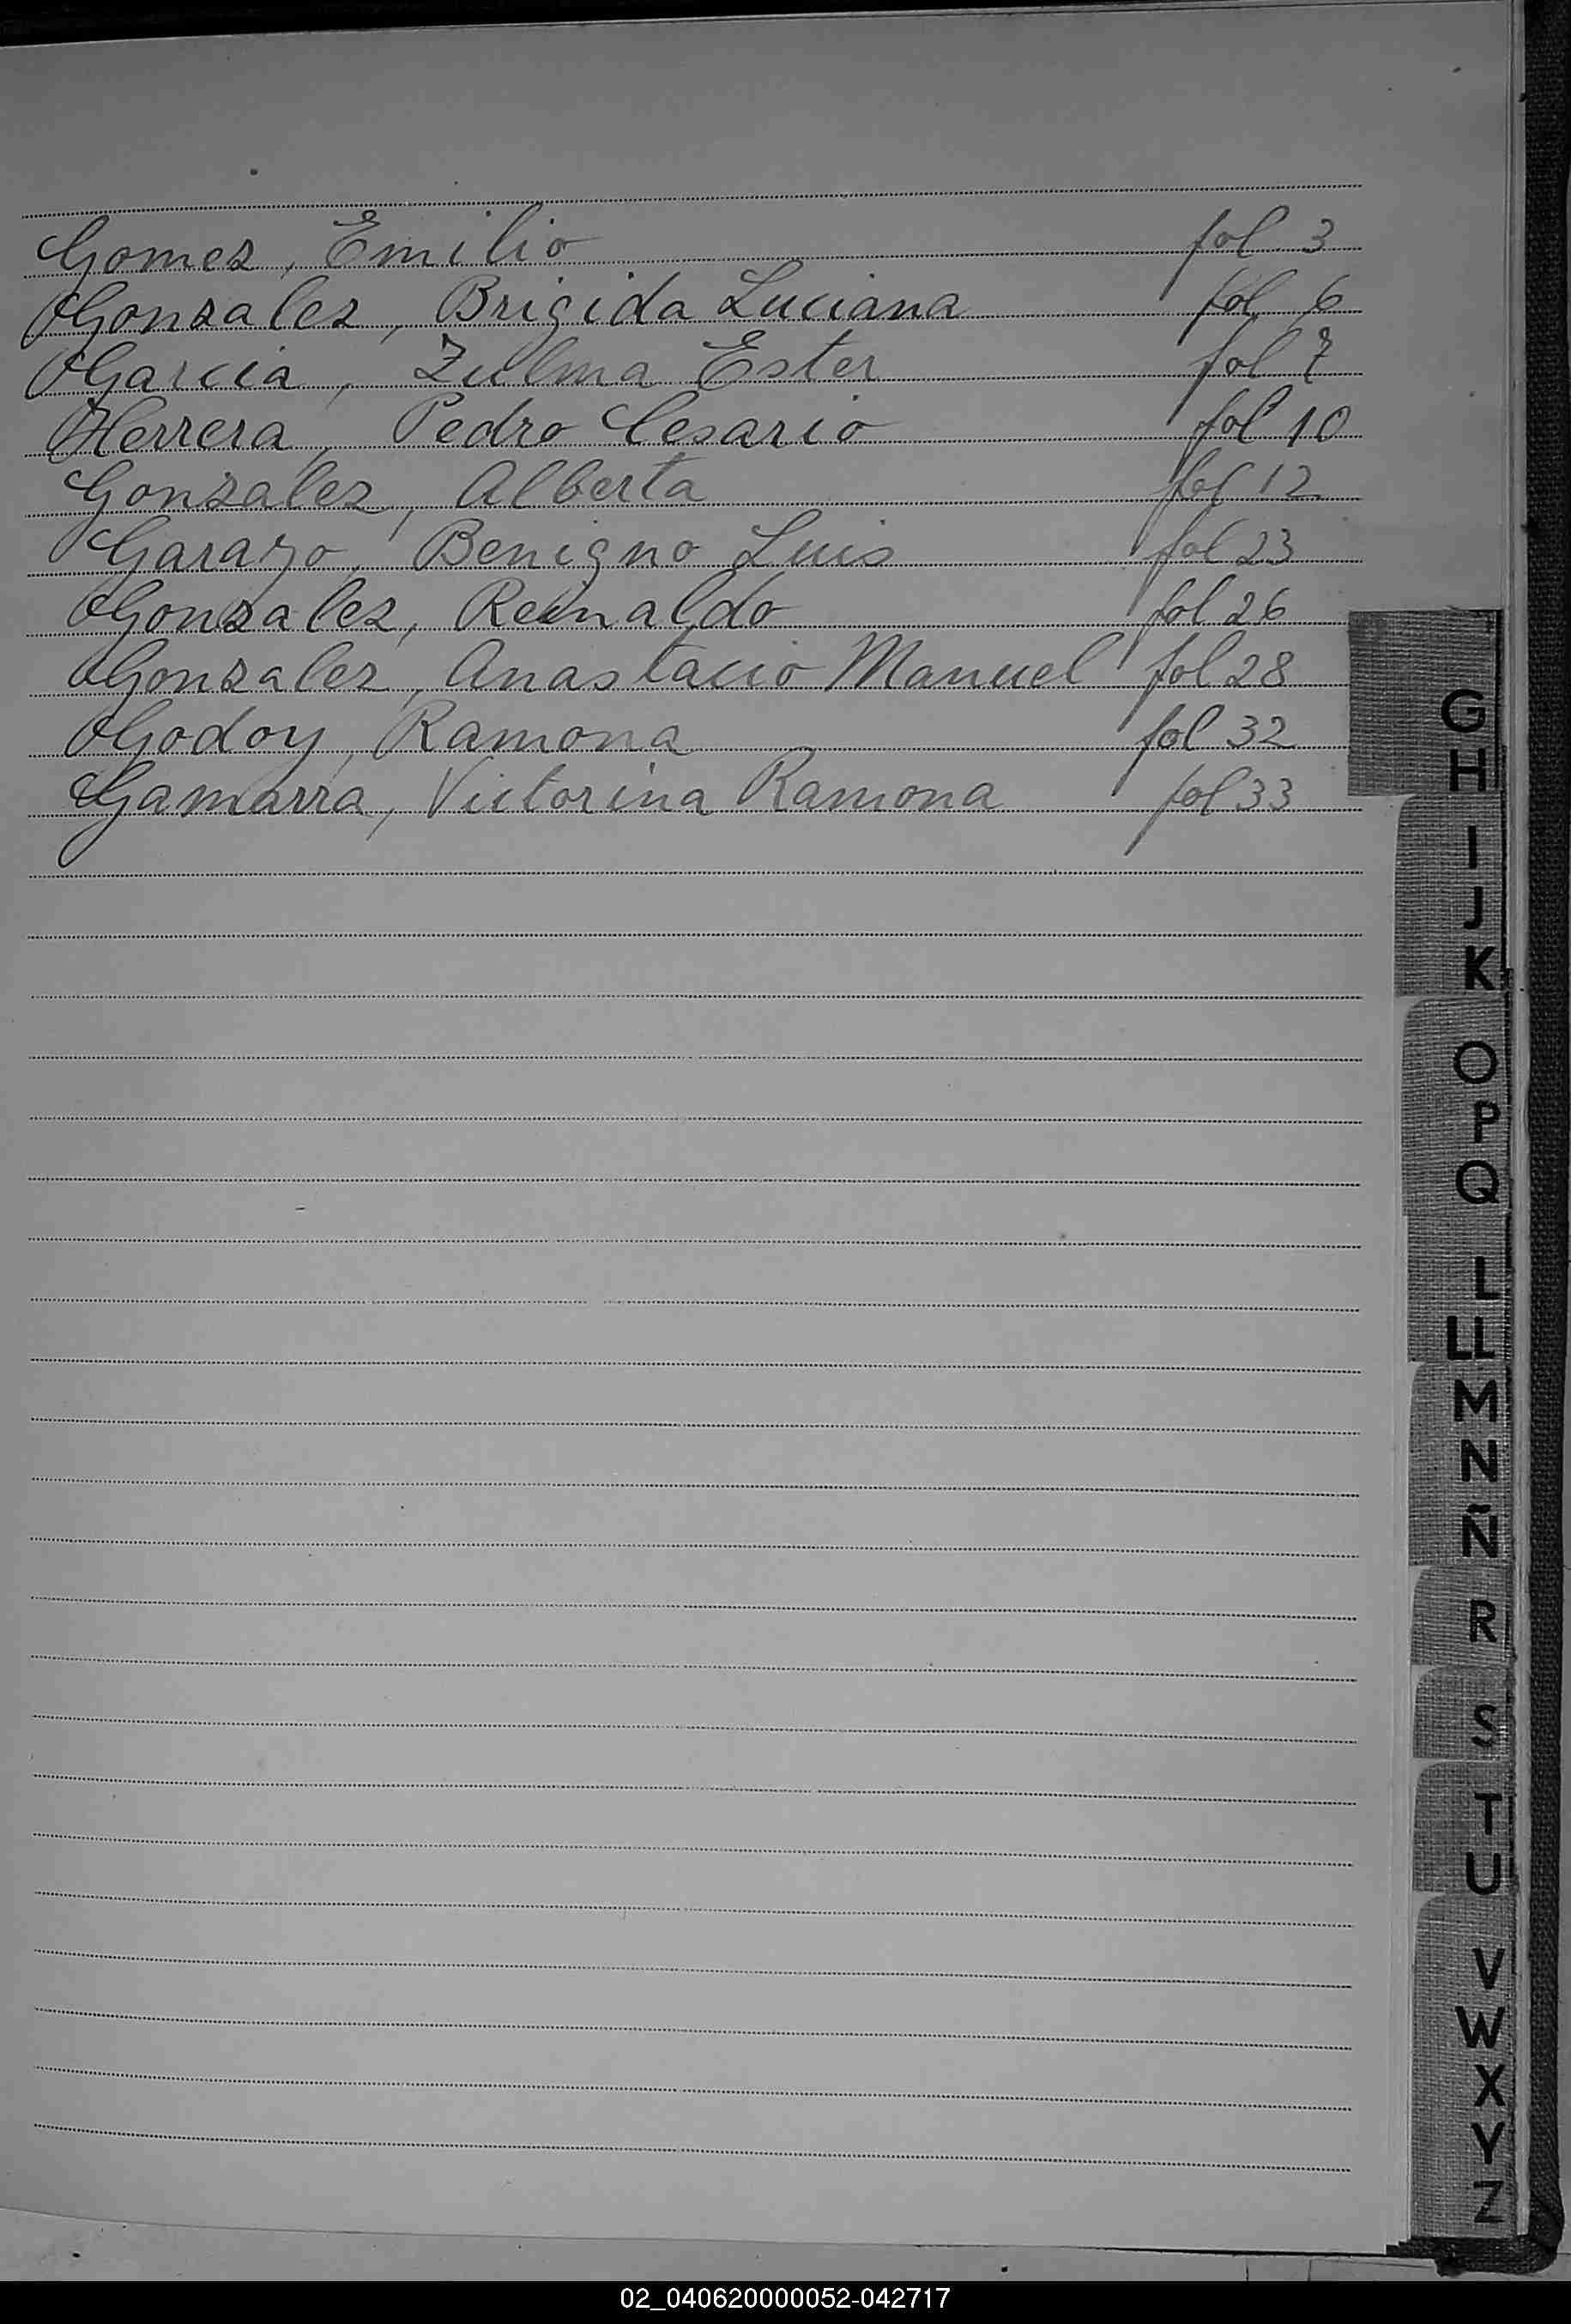 Gomez, Emilio fol 3
Gonzalez, Brigida Luciana fol 6
Garcia, Zulma Ester fol 7
Herrera, Pedro Cesario fol 10
Gonzalez, Alberta fol 12
Garayo, Benigno Luis fol 23
Gonzalez, Reinaldo fol 26
Gonzalez, Anastacio Manuel fol 28
Godoy, Ramona fol 32
Gamarra, Victorina Ramona fol 33
G
H
I
J
K
O
P
Q
L
LL
M
N
Ñ
R
S
T
U
V
W
X
Y
Z
02_040620000052-042717